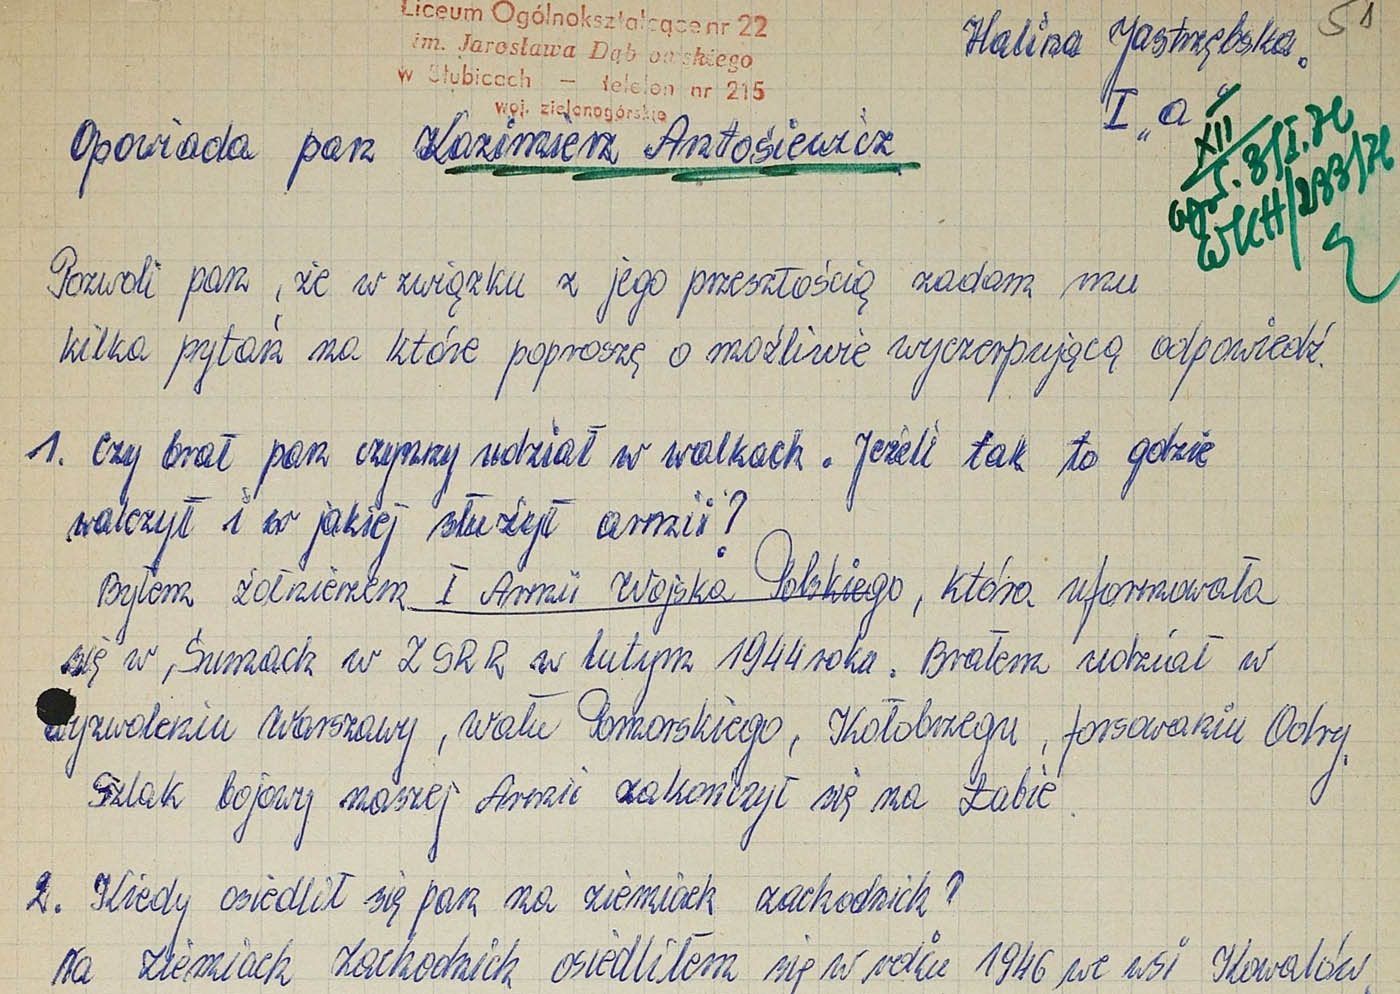 Liceum Ogólnokształcące nr 22
im. Jarosława Dąbrowskiego
w Słubicach — telefon nr 215
woj. zielonogórskie
51
Halina Jastrzębska.
I „a"
XII
WKH/233/78
Opowiada pan Kazimierz Antosiewicz
Pozwoli pan, że w związku z jego przeszłością zadam mu
kilka pytań na które poproszę o możliwie wyczerpującą odpowiedź.
1. Czy brał pan czynny udział w walkach. Jeżeli tak to gdzie
walczył i w jakiej służył armii?
Byłem żołnierzem I Armii Wojska Polskiego, która uformowała
się w Sumach w ZSRR w lutym 1944 roku. Brałem udział w
wyzwoleniu Warszawy, wału Pomorskiego, Kołobrzegu, forsowaniu Odry.
Szlak bojowy naszej Armii zakończył się na Łabie
2. Kiedy osiedlił się pan na ziemiach zachodnich?
Na ziemiach zachodnich osiedliłem się w roku 1946 we wsi Kowalów.